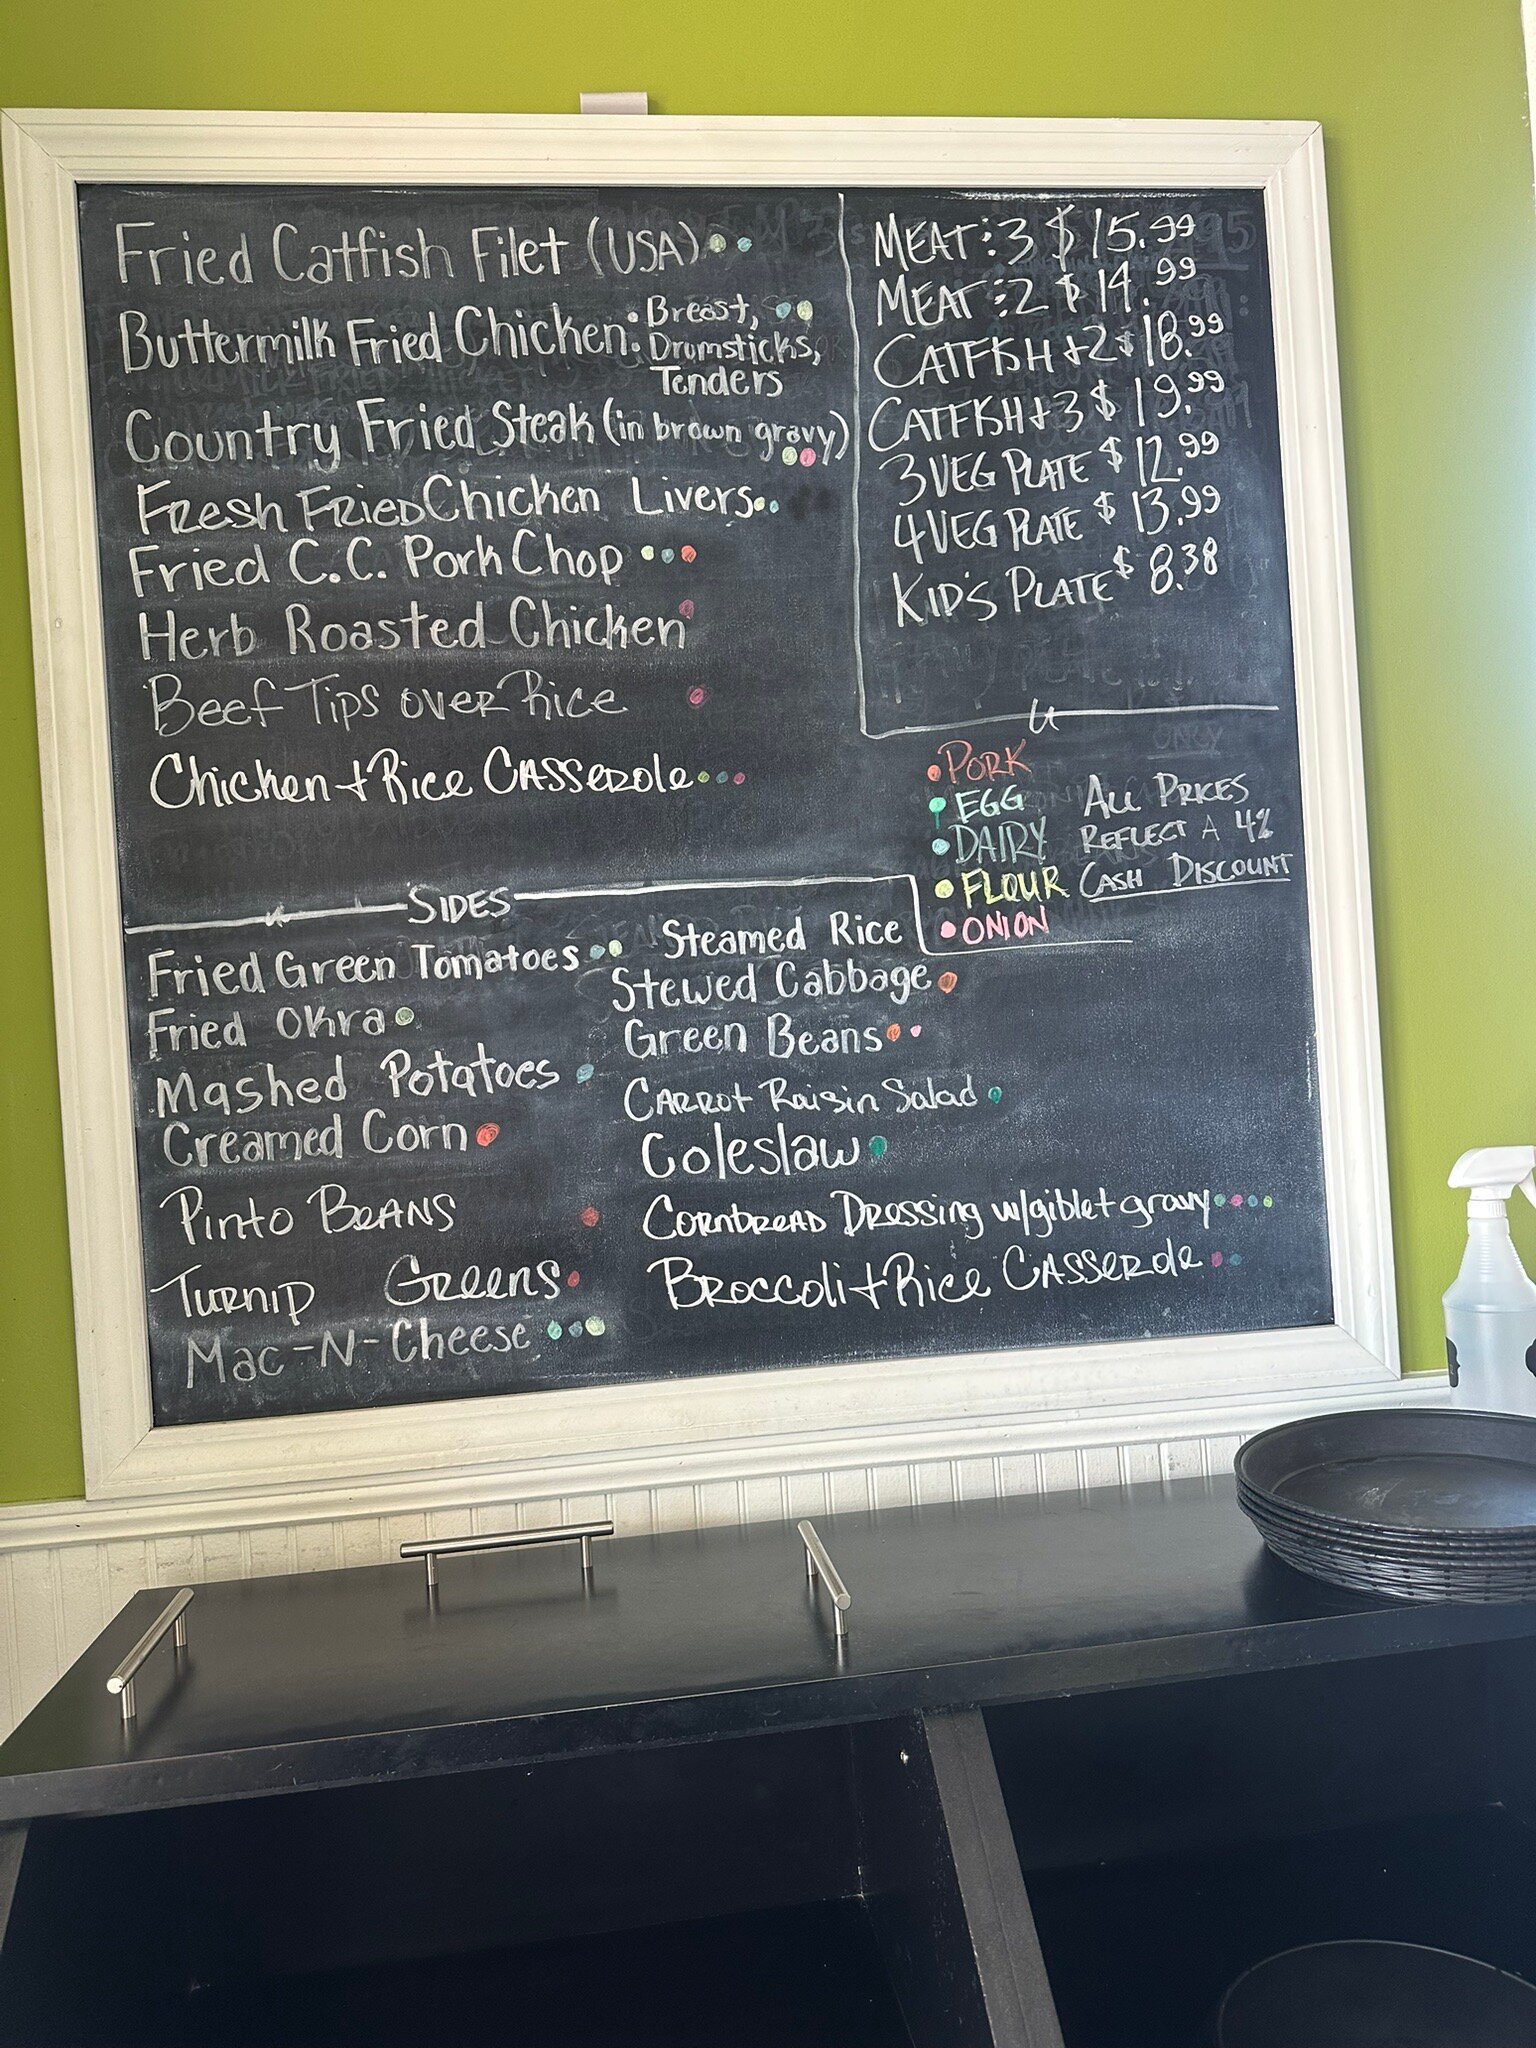 Fried Catfish Filet (USA)
Buttermilk Fried Chicken: Breast,
Drumsticks,
Tenders
Country Fried Steak (in brown gravy)
Fresh Fried Chicken Livers
Fried C.C. Pork Chop
Herb Roasted Chicken
Beef Tips over Rice
Chicken + Rice Casserole
MEAT : 3 $15.99
MEAT : 2 $14.99
CATFISH + 2 $18.99
CATFISH + 3 $19.99
3 VEG PLATE $12.99
4 VEG PLATE $13.99
KID'S PLATE $8.38
PORK
EGG
DAIRY
FLOUR
ONION
ALL PRICES
REFLECT A 4%
CASH DISCOUNT
SIDES
Fried Green Tomatoes
Fried Okra
Mashed Potatoes
Creamed Corn
Pinto Beans
Turnip Greens
Mac-N-Cheese
Steamed Rice
Stewed Cabbage
Green Beans
Carrot Raisin Salad
Coleslaw
Cornbread Dressing w/giblet gravy
Broccoli + Rice Casserole